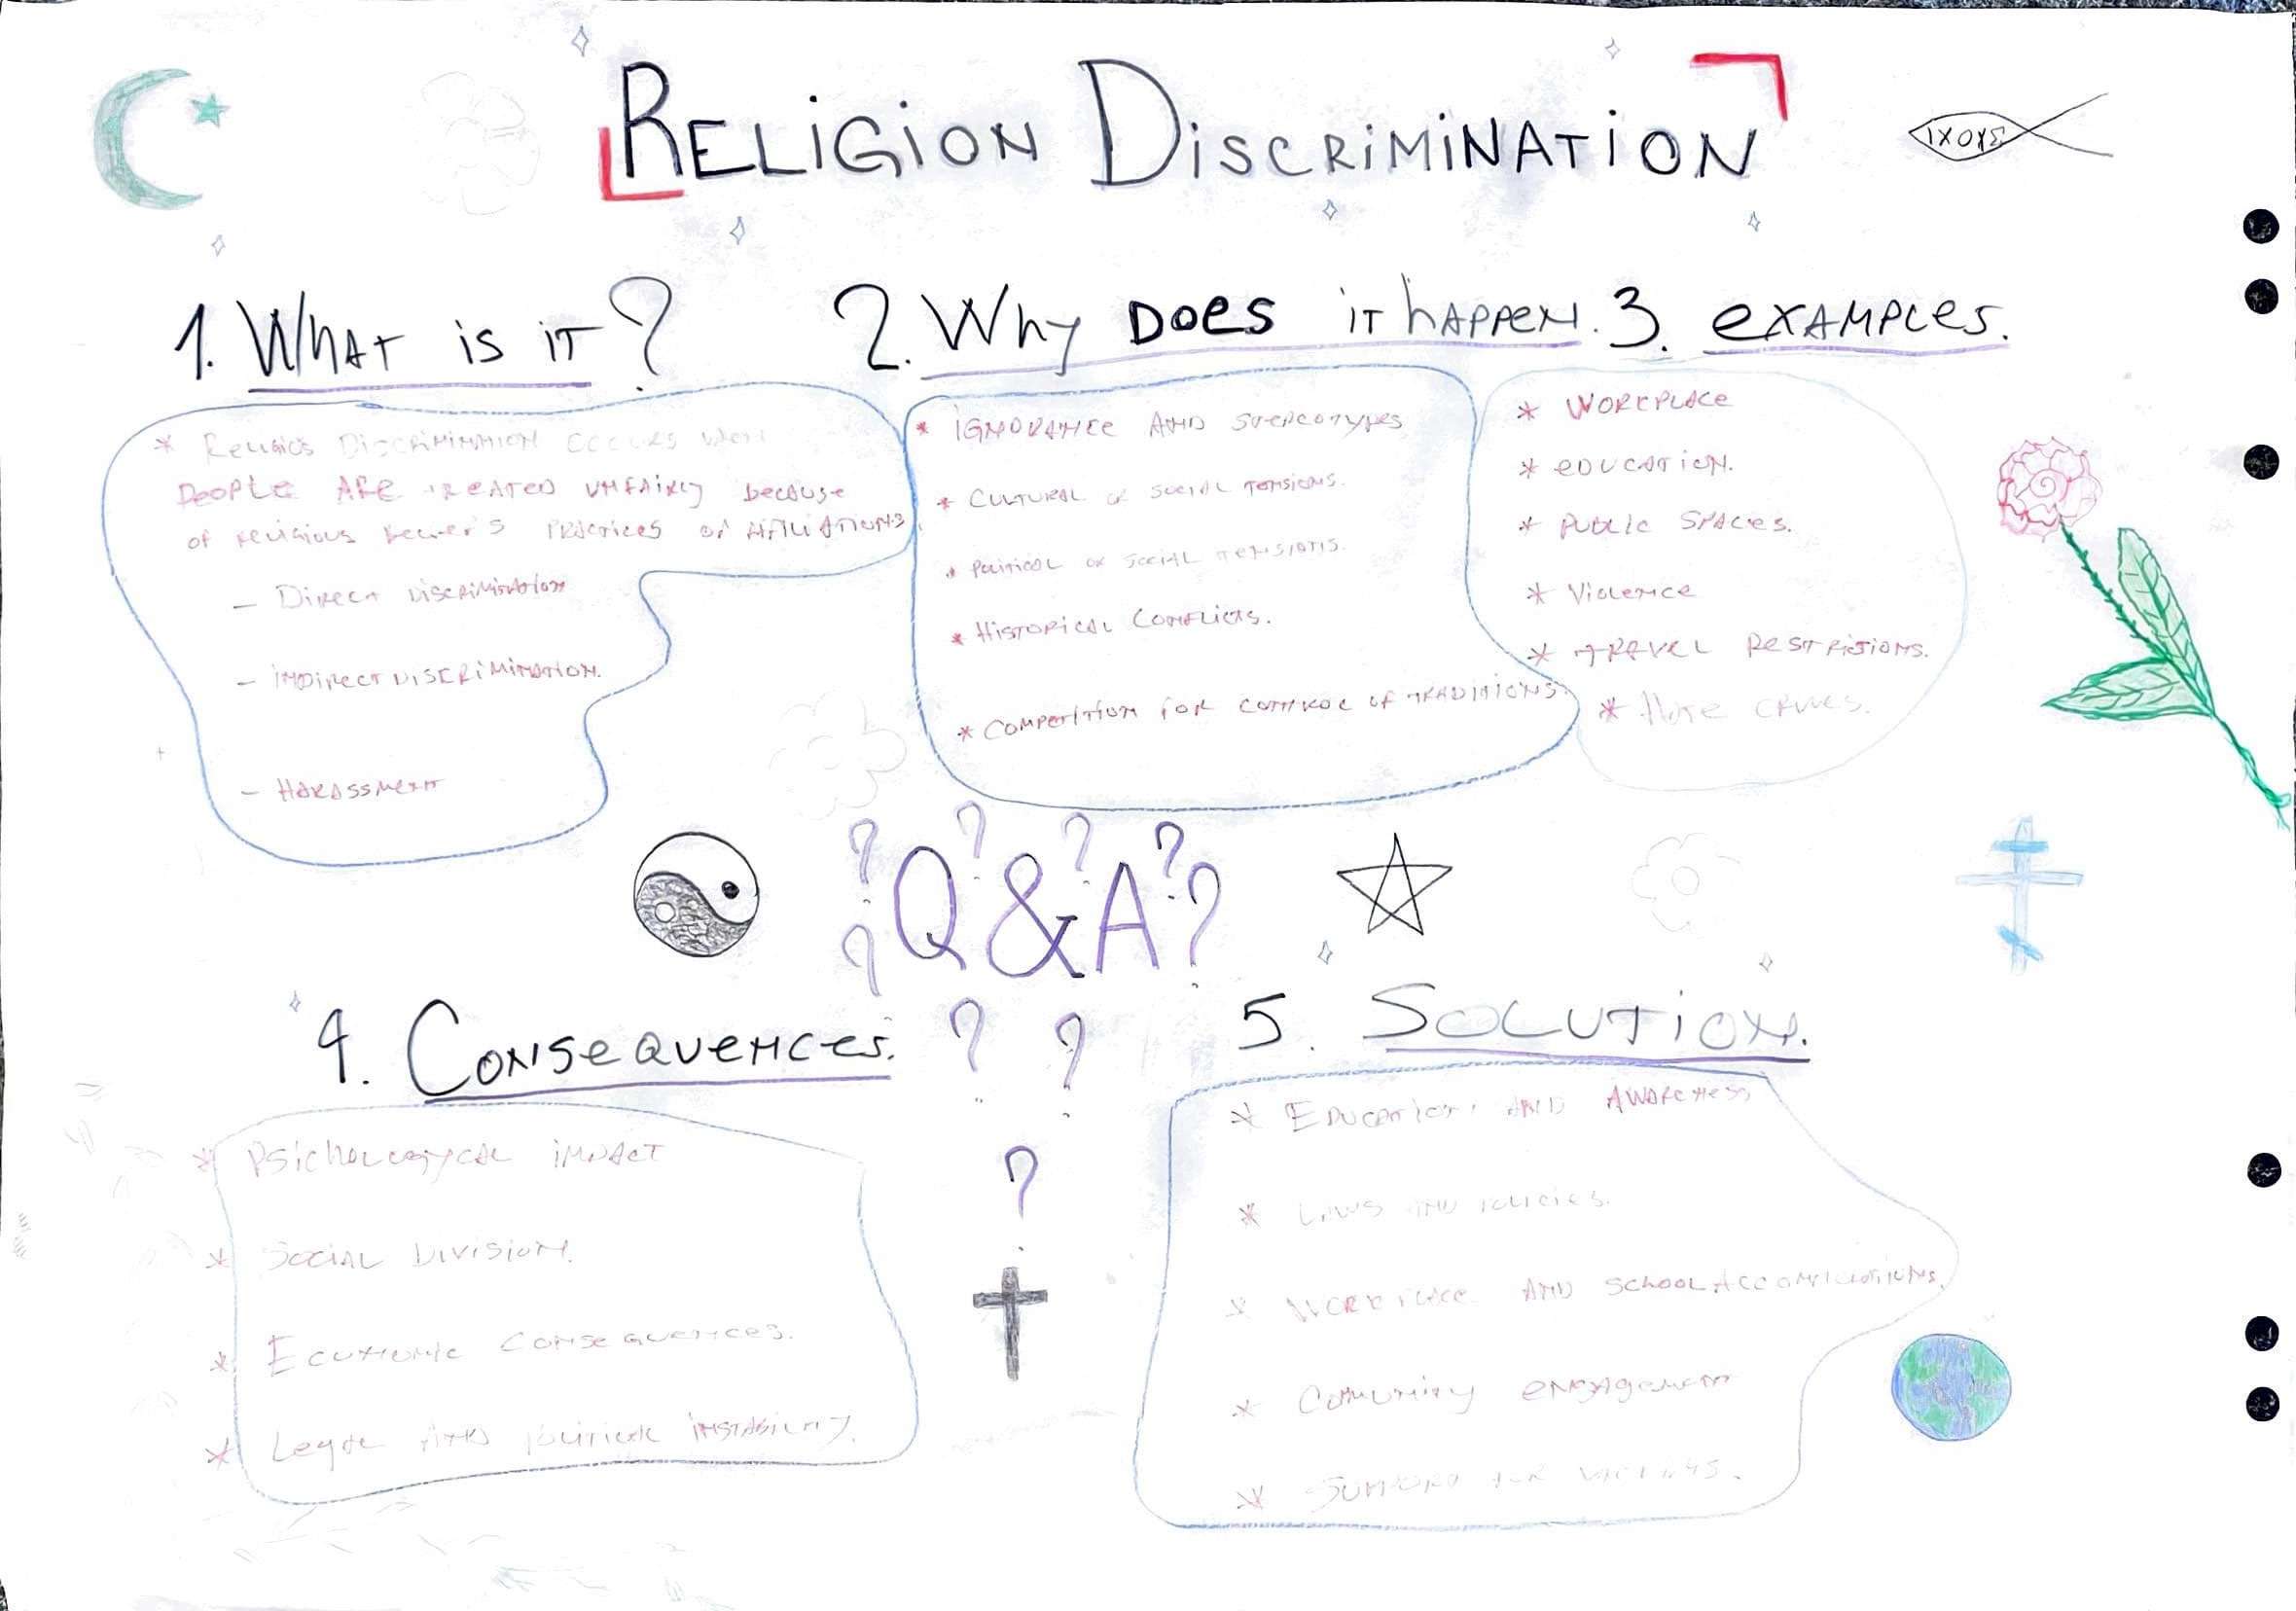 RELIGION DISCRIMINATION
ΙΧΟΥΣ
1. WHAT is iT?
* Religios DISCRIMINATION OCCURS when
PEOPLE ARE TREATED UNFAIRLY because
of religious PRACTICES or AFILIATIONS.
- Direct DISCRIMINATION
- INDIRECT DISCRIMINATION.
- HARASSMENT
2. Why DOES iT hAPPEN.
* IGNORANCE AND STEREOTYPES
* CULTURAL or SOCIAL TENSIONS.
* Political or SOCIAL TENSIONS.
* HISTORICAL CONFLICTS.
* COMPETITION FOR CONTROL OF TRADITIONS.
3. eXAMPLES.
* WORKPLACE
* eDUCATION.
* PUBLIC SPACES.
* Violence
* TRAVEL RESTRICTIONS.
* Hate CRIMES.
? Q & A ?
4. CONSEQUENCES.
* PSICHOLOGYCAL IMPACT
* SOCIAL DIVISION.
* ECONOMIC CONSEQUENCES.
* Legal AND POLITICAL INSTABILITY.
5. SOLUTION.
* EDUCATION AND AWARENESS
* LAWS AND POLICIES.
* WORKPLACE AND SCHOOL
* COMUNITY ENGAGEMENT
* SUPPORT FOR VICTIMS.